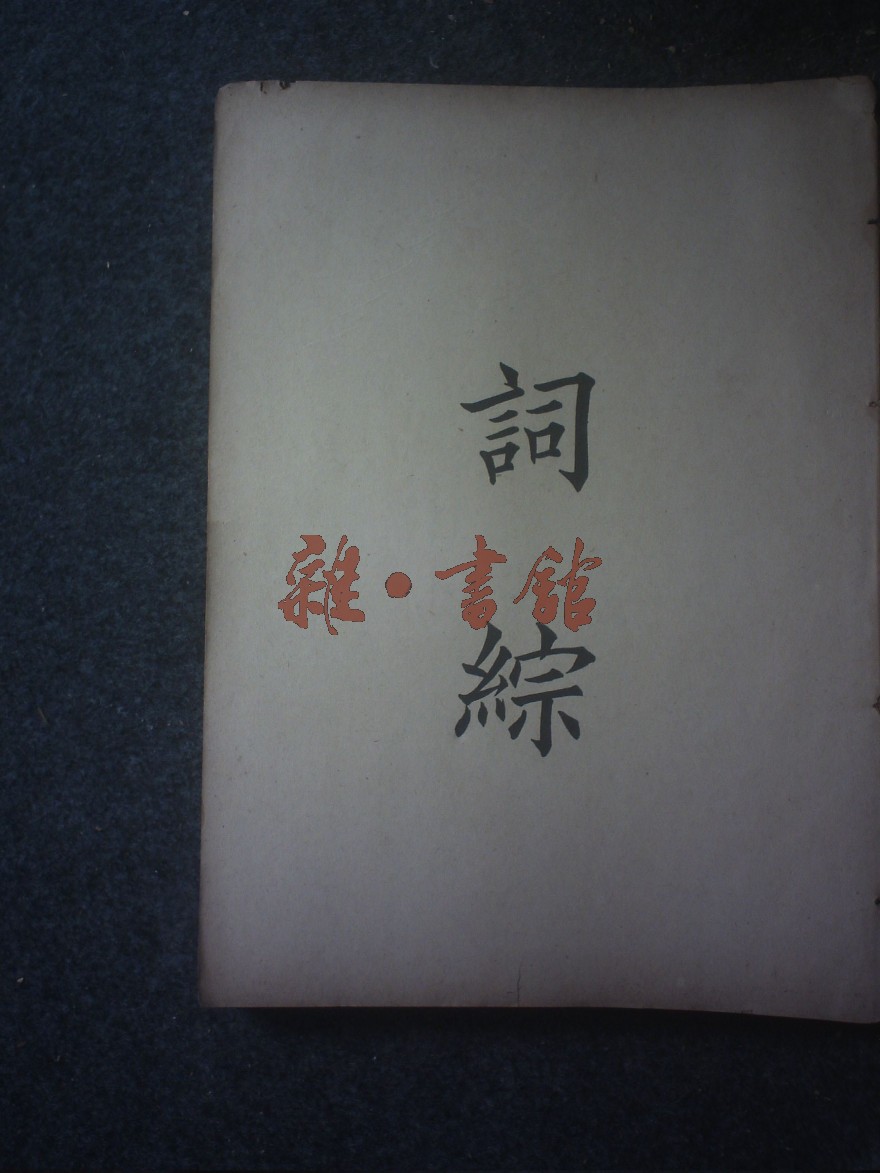 詞綜
雜·書館